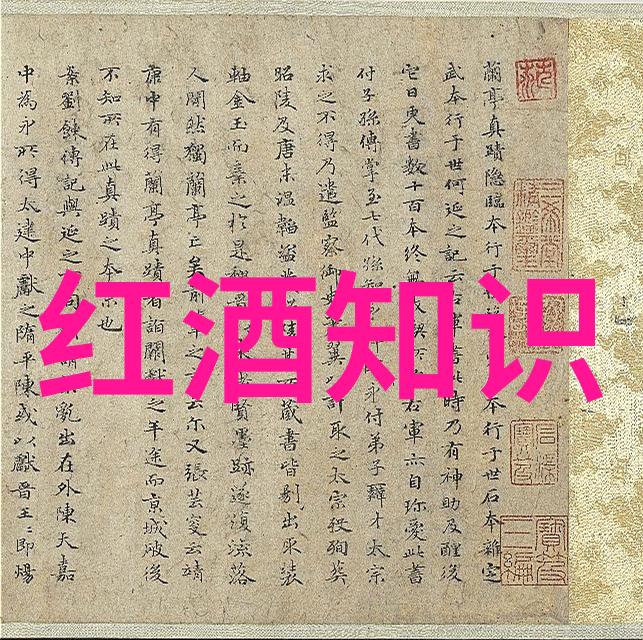 红酒知识
蘭亭真蹟隐臨本行于本行于世石本雜定
武本行于世何延之記云右軍書此時乃有神助及醒後
它日更書數十百本終無右軍亦自珎愛此書
付子孫傳掌至七代孫智永付弟子辯才太宗
求之不得乃遣監察御史蕭翼以計取之太宗後殉葬
昭陵及唐末温韜所藏書皆剔出取裝
軸金玉而棄之於是魏晉賢墨跡遂復流落
人間然獨蘭亭亡矣前輩之云尔又張芸叟云靖
康中有得蘭亭真蹟者詣闕獻之半途而京城破後
不知所在此真蹟之本末也
案劉餗傳記與延之亂出在外陳天嘉
中為永所得太建中獻之隋平陳或以獻晉王〻即煬